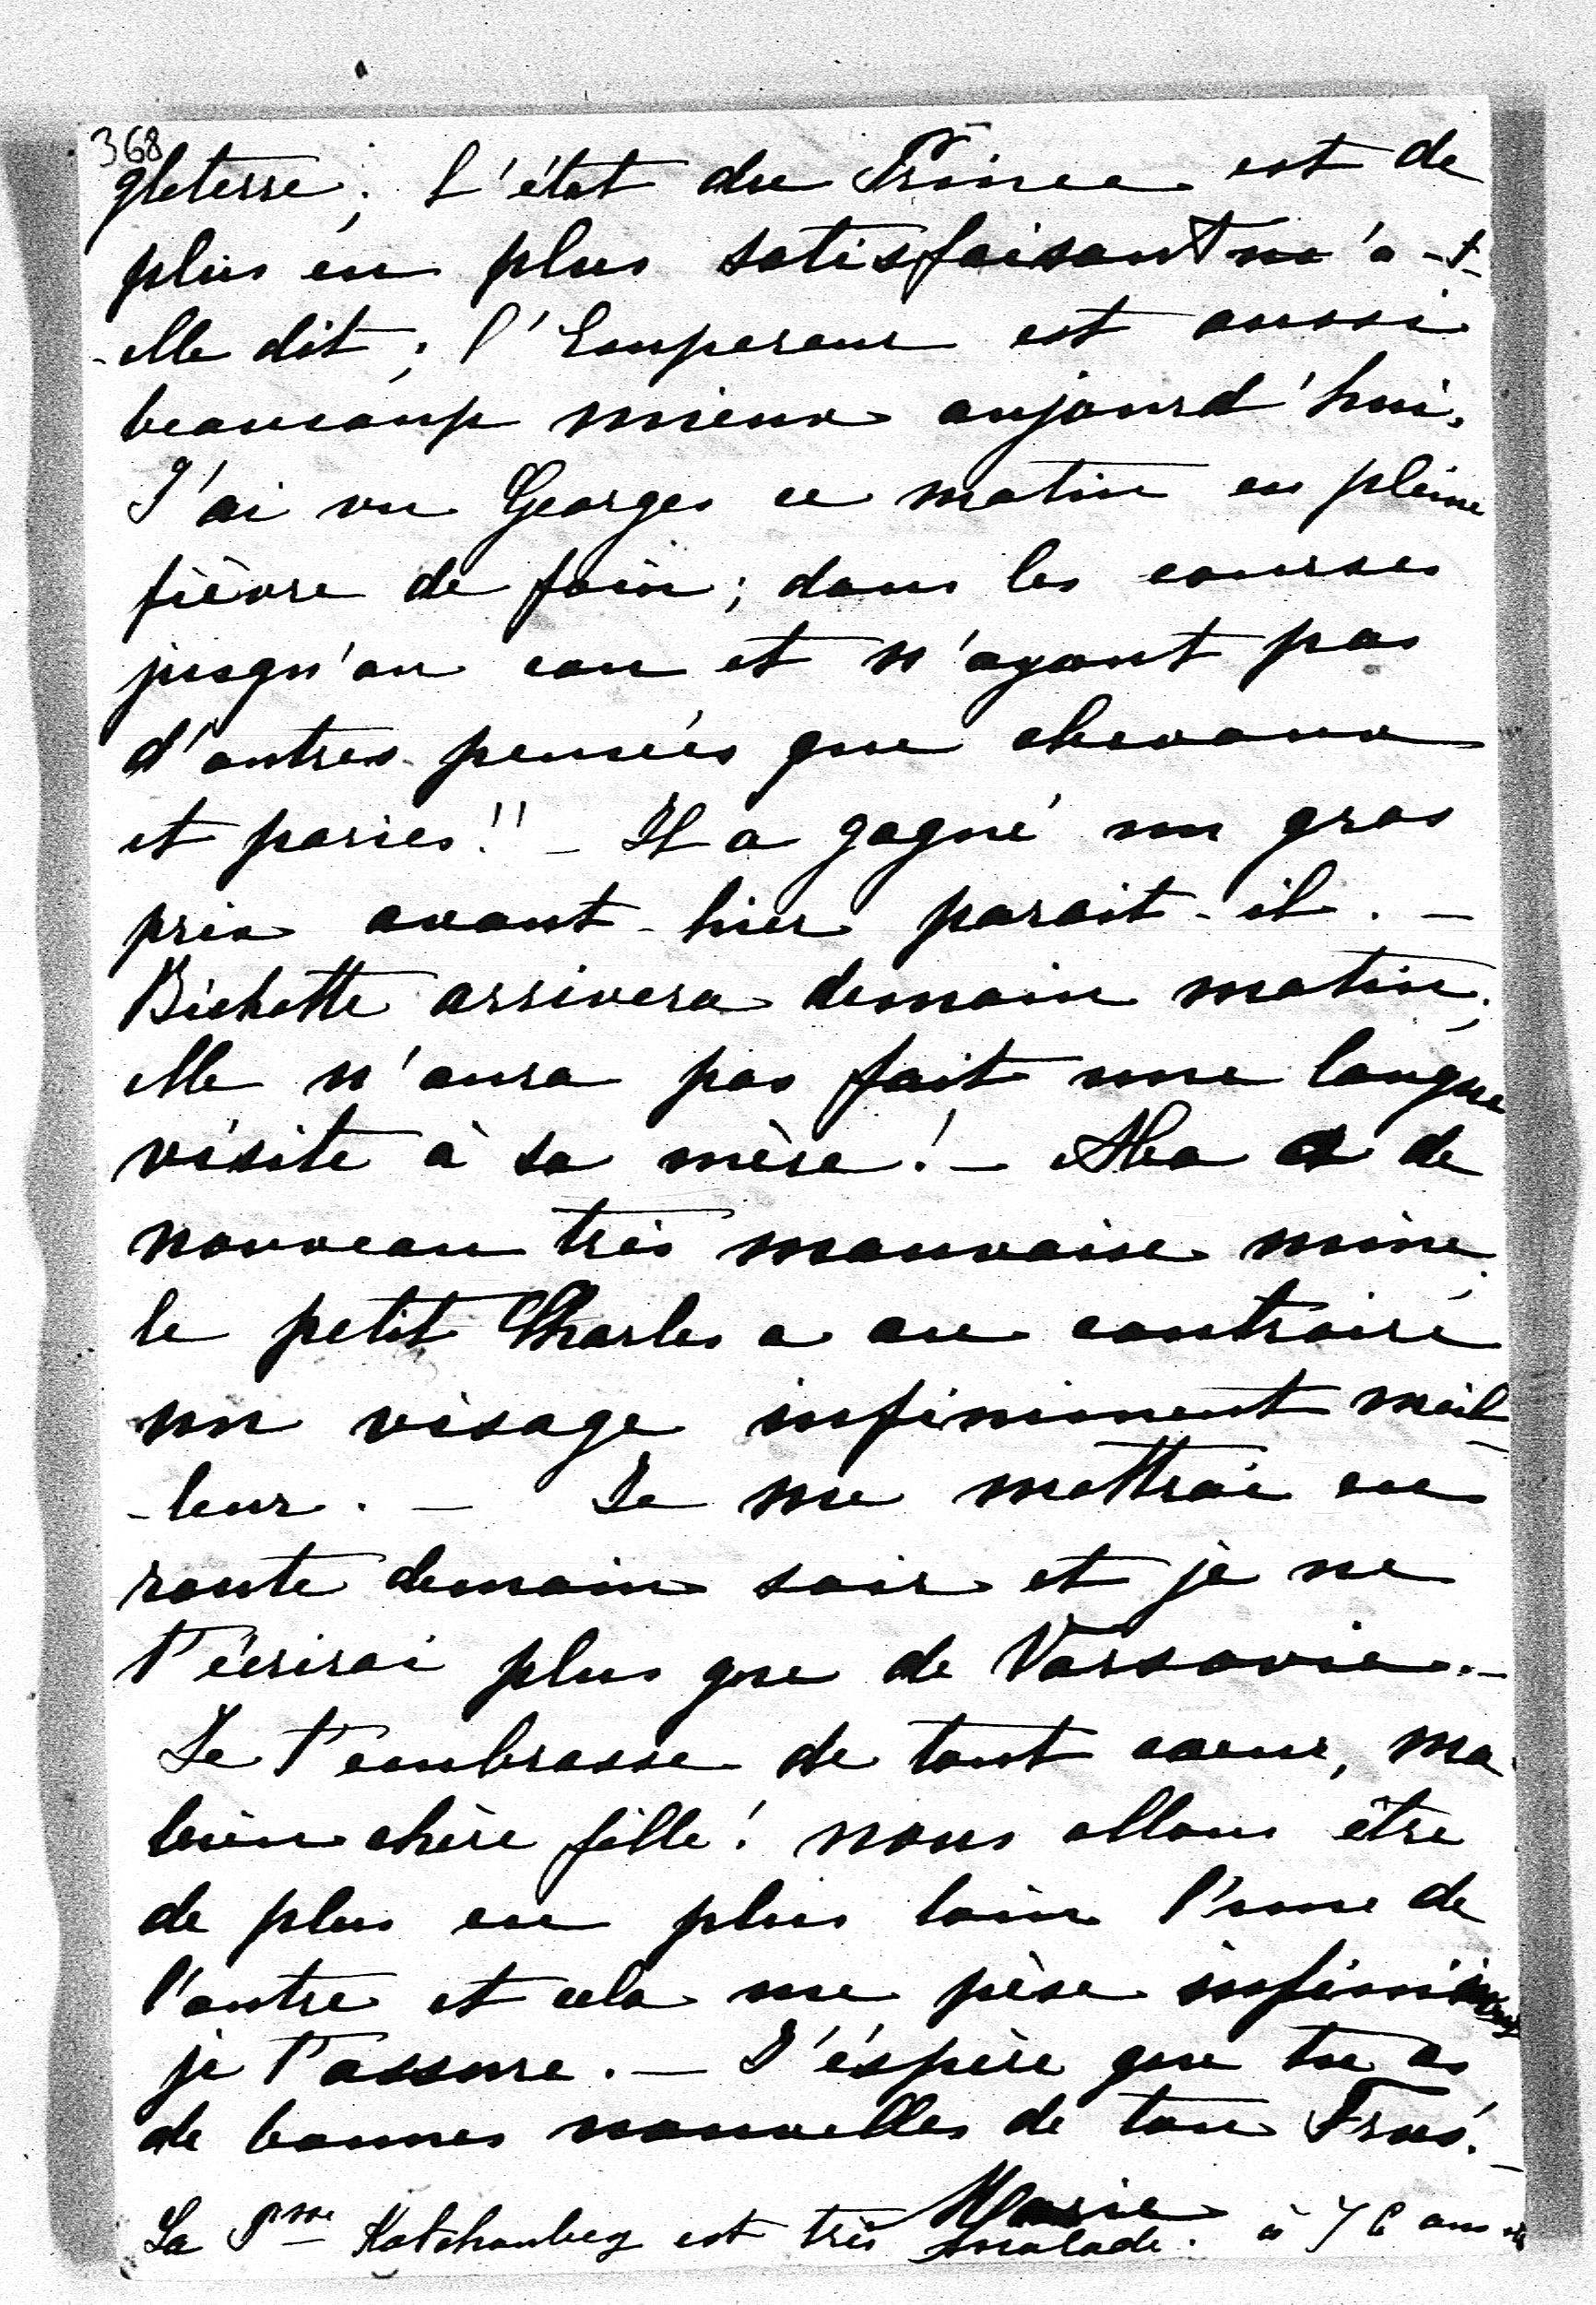 368
gleterre; l'état du Prince est de
plus en plus satisfaisant m'a-t-
-elle dit; l'Empereur est aussi
beaucoup mieux aujourd'hui.
J'ai vu Georges ce matin en pleine
fièvre de foin; dans les courses
jusqu'au cou et n'ayant pas
d'autres pensées que chevaux
et paries!! - Il a gagné un gros
prix avant-hier parait-il. -
Bichette arrivera demain matin;
elle n'aura pas fait une longue
visite à sa mère! - Aba a de
nouveau très mauvaise mine,
le petit Charles a au contraire
un visage infiniment meil-
-leur. - Je me mettrai en
route demain soir et je ne
t'écrirai plus que de Varsovie. -
Je t'embrasse de tout coeur, ma
bien chère fille! nous allons être
de plus en plus loin l'une de
l'autre et cela me pèse infiniment
je t'assure. - J'éspère que tu as
de bonnes nouvelles de ton
Marie
La Psse Kotchoubey est très malade. à 76 ans